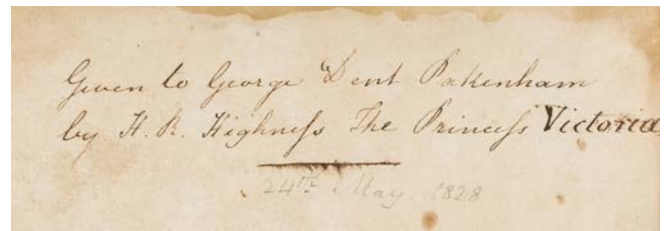 Given to George Dent Pakenham
by H. R. Highneſs The Princeſs Victoria
24th May. 1828